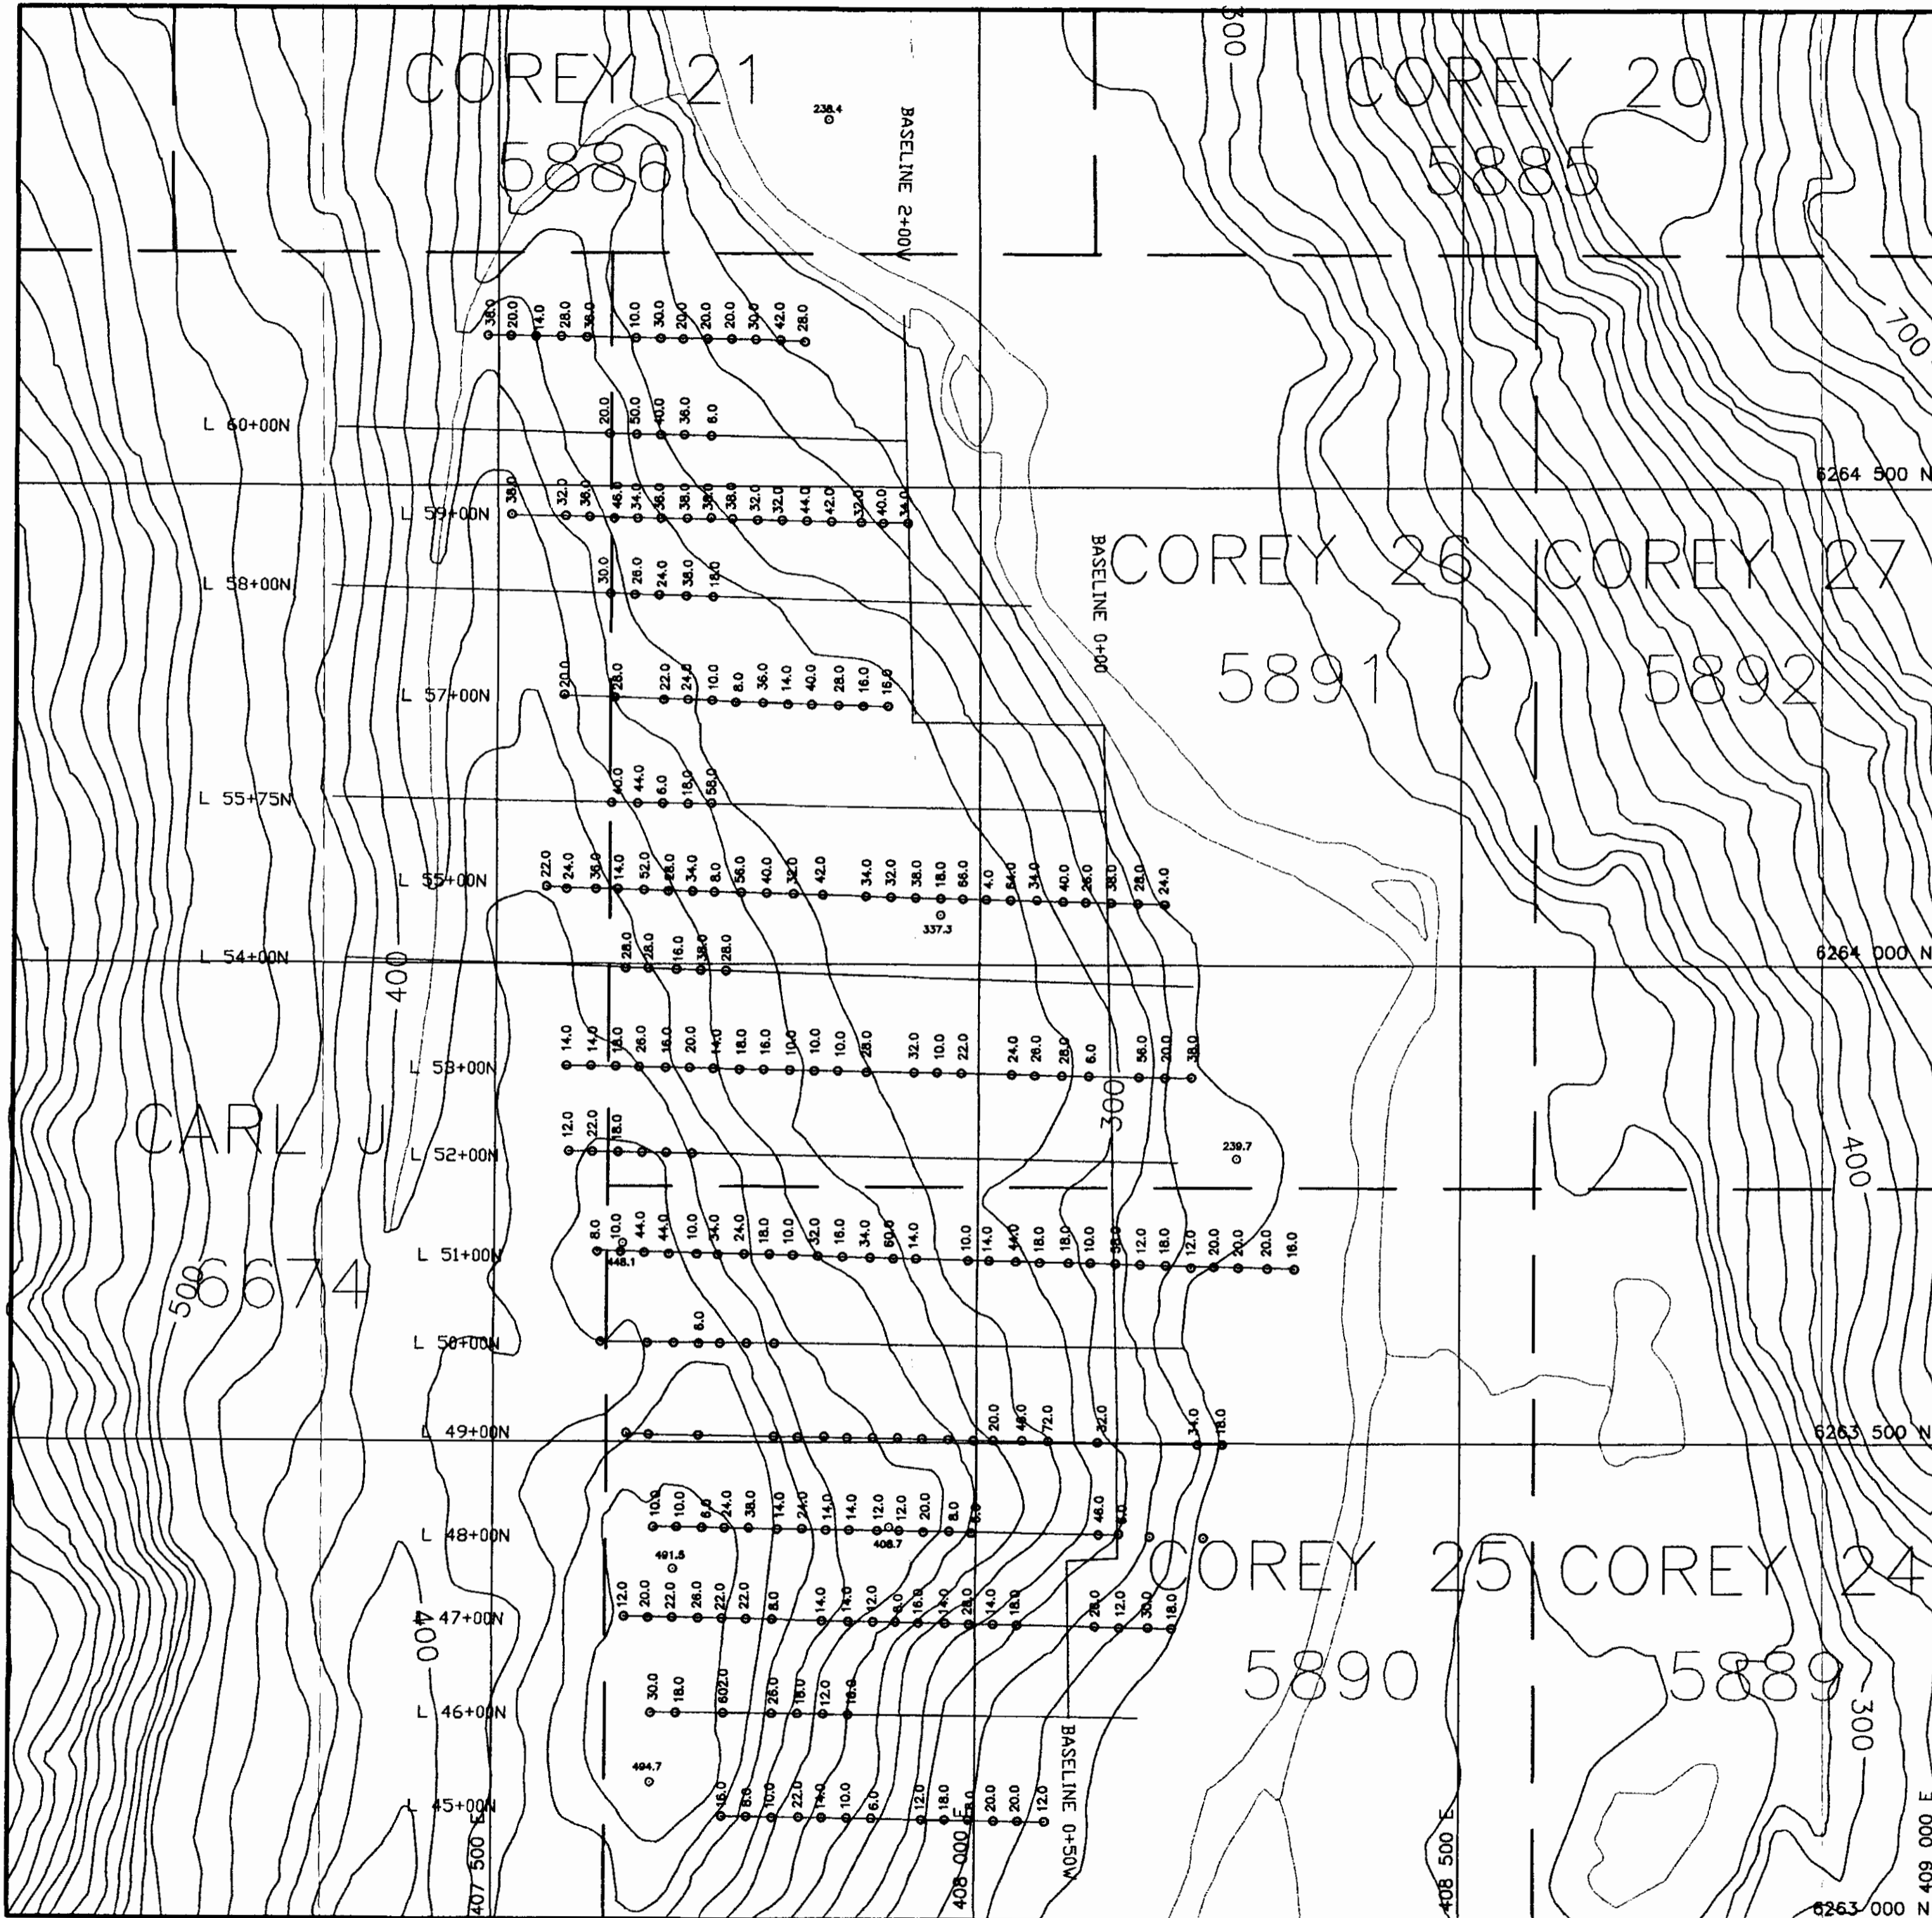 300
COREY 21
COREY 20
238.4
BASELINE 2+00W
5886
5885
700
38.0 20.0 14.0 28.0 38.0 10.0 30.0 20.0 20.0 20.0 30.0 42.0 28.0
L 60+00N
20.0 50.0 40.0 36.0 6.0
6264 500 N
L 59+00N
38.0 32.0 36.0 46.0 34.0 36.0 38.0 38.0 38.0 32.0 32.0 44.0 42.0 32.0 40.0 34.0
BASELINE 0+00
COREY 26
COREY 27
L 58+00N
30.0 26.0 24.0 38.0 18.0
5891
5892
L 57+00N
20.0 28.0 22.0 24.0 10.0 8.0 36.0 14.0 40.0 28.0 16.0 16.0
L 55+75N
40.0 44.0 6.0 18.0 58.0
L 55+00N
22.0 24.0 36.0 14.0 52.0 28.0 34.0 8.0 56.0 40.0 32.0 42.0 34.0 32.0 38.0 18.0 66.0 4.0 64.0 34.0 40.0 26.0 38.0 28.0 24.0
337.3
L 54+00N
400
28.0 28.0 16.0 38.0 28.0
6264 000 N
L 53+00N
14.0 14.0 18.0 26.0 16.0 20.0 14.0 18.0 16.0 10.0 10.0 10.0 28.0 32.0 10.0 22.0 24.0 26.0 28.0 6.0 56.0 20.0 38.0
300
CARL J
L 52+00N
12.0 22.0 18.0
239.7
400
L 51+00N
8.0 10.0 44.0 44.0 10.0 34.0 24.0 18.0 10.0 32.0 16.0 34.0 60.0 14.0 10.0 14.0 44.0 18.0 18.0 10.0 38.0 12.0 18.0 12.0 20.0 20.0 20.0 16.0
448.1
6674
500
L 50+00N
6.0
L 49+00N
20.0 46.0 72.0 32.0 34.0 18.0
6263 500 N
L 48+00N
10.0 10.0 6.0 24.0 38.0 14.0 24.0 14.0 14.0 12.0 12.0 20.0 8.0 46.0
408.7
491.5
COREY 25
COREY 24
L 47+00N
12.0 20.0 22.0 26.0 22.0 22.0 8.0 14.0 14.0 12.0 16.0 14.0 28.0 14.0 18.0 28.0 12.0 30.0 18.0
400
5890
5889
L 46+00N
30.0 18.0 602.0 26.0 18.0 12.0 18.0
300
BASELINE 0+50W
494.7
L 45+00N
16.0 8.0 10.0 22.0 14.0 10.0 6.0 12.0 18.0 20.0 20.0 12.0
407 500 E
408 000 E
408 500 E
409 000 E
6263 000 N